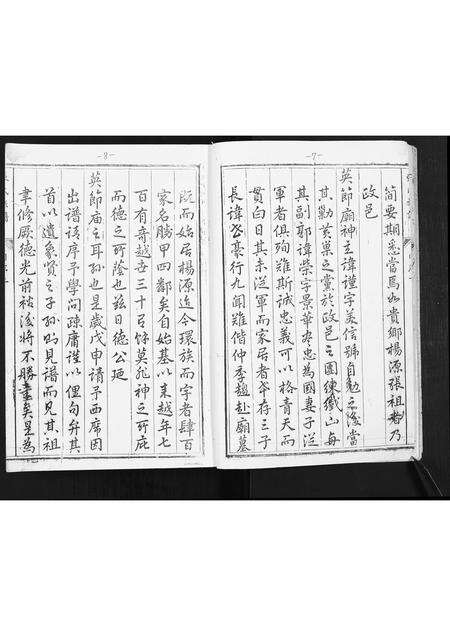 -7-
簡要期悉當焉如貴鄉楊源張祖者乃
政邑
英節廟神玄諱謹字美信號自勉之後當
其勦黃巢之黨於政邑之園練鐵山每
其副郭諱榮字景華亦忠為國妻子從
軍者俱殉難斯誠忠義可以格青天而
貫白日其未從軍而家居者爷存三子
長諱豪行九聞難偕仲季趨赴廟墓
-8-
既而始居楊源迄今環族而宇者肆百
家名勝甲四鄰矣自始基以來越年七
百有奇越吾三十有餘莫非神之所庇
而德之所蔭也茲日德公廷
英節廟之耳孫也是歲戊申請予西席因
出譜請序予學問疎庸謹以俚句弁其
首以遺象賢之子孫則見譜而見其祖
聿修厥德光前裕後將不勝畫矣是為